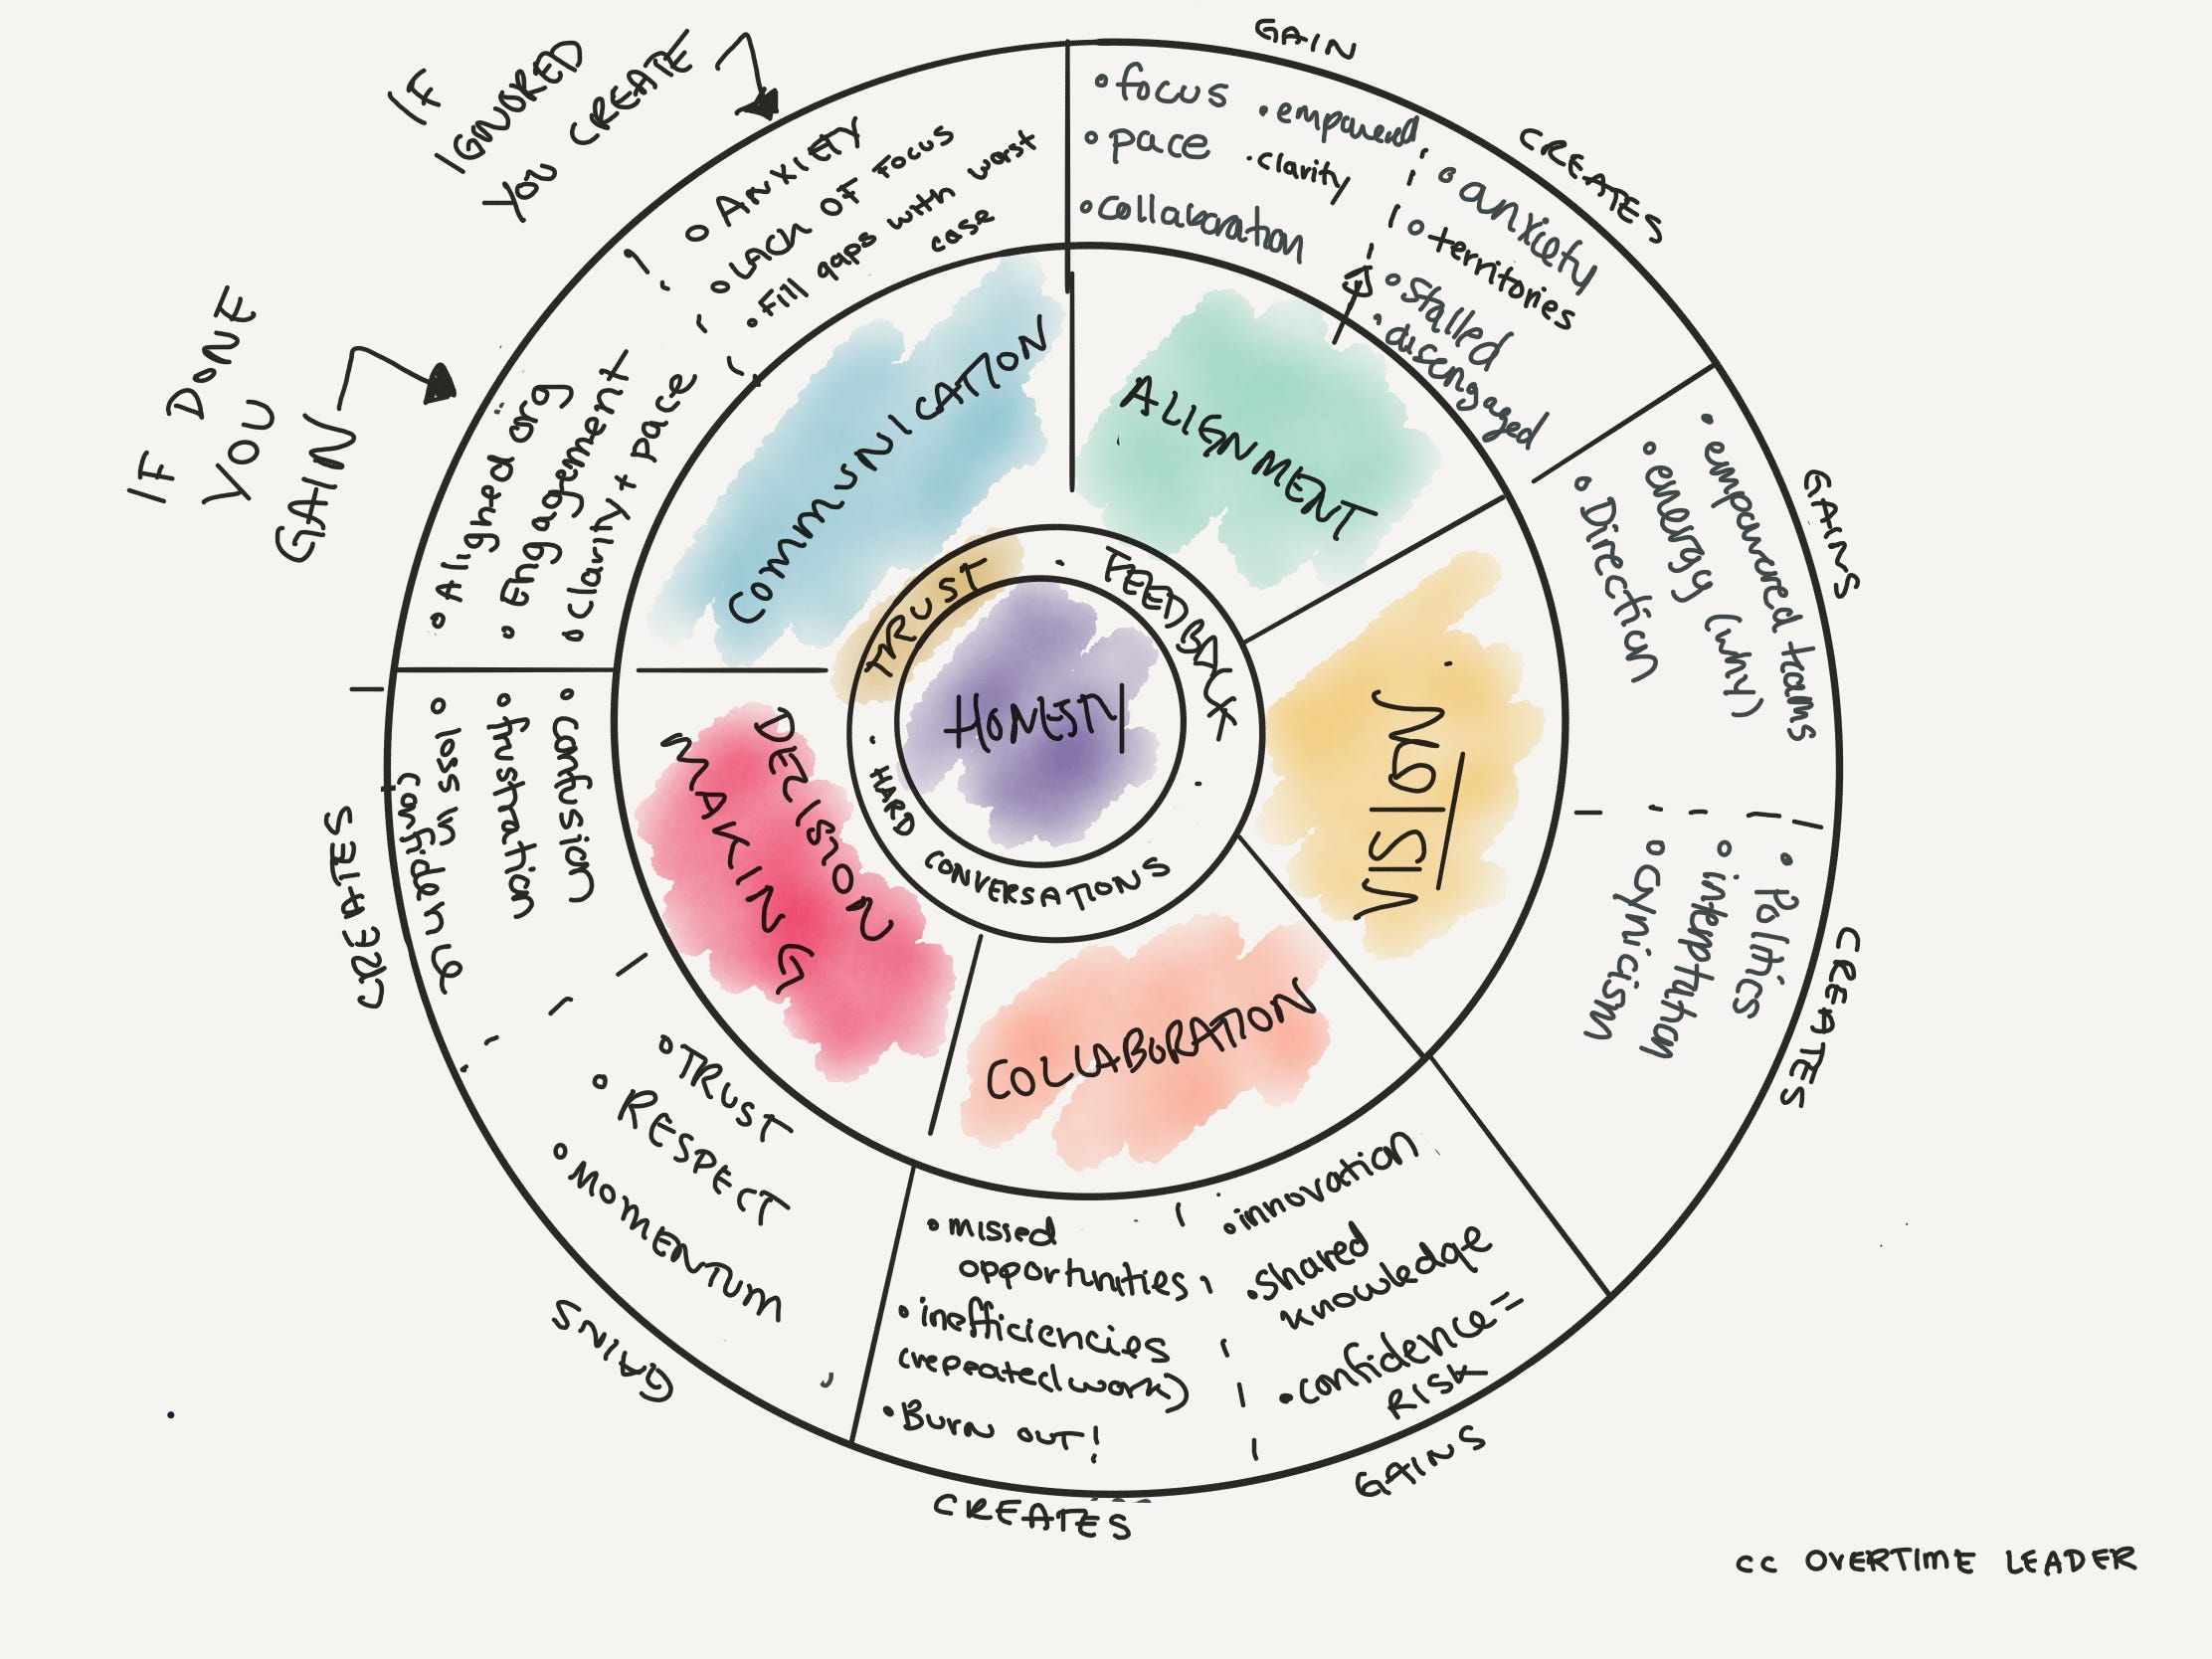 IF
IGNORED
YOU CREATE
IF DONE
YOU
GAIN
• ANXIETY
• LACK OF FOCUS
• Fill gaps with worst
case
• Aligned org
• Engagement
• Clarity + pace
GAIN
• focus
• pace
• collaboration
• empowered
• clarity
CREATES
• anxiety
• territories
• stalled
• disengaged
GAINS
• empowered teams
• energy (why)
• Direction
CREATES
• Politics
• cynicism
GAINS
• innovation
• shared
knowledge
• confidence =
RISK
CREATES
• missed
opportunities
• inefficiencies
(repeated work)
• Burn out!
GAINS
• TRUST
• RESPECT
• MOMENTUM
CREATES
• confusion
• frustration
• loss in
COMMUNICATION
ALIGNMENT
VISION
COLLABORATION
DECISION
MAKING
TRUST
• FEEDBACK
• HARD CONVERSATIONS
HONESTY
CC OVERTIME LEADER